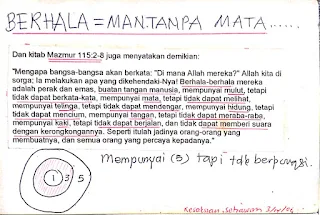 BERHALA = MANTANPA MATA.....
Dan kitab Mazmur 115:2-8 juga menyatakan demikian:
"Mengapa bangsa-bangsa akan berkata: "Di mana Allah mereka?" Allah kita di
sorga; Ia melakukan apa yang dikehendaki-Nya! Berhala-berhala mereka
adalah perak dan emas, buatan tangan manusia, mempunyai mulut, tetapi
tidak dapat berkata-kata, mempunyai mata, tetapi tidak dapat melihat,
mempunyai telinga, tetapi tidak dapat mendengar, mempunyai hidung, tetapi
tidak dapat mencium, mempunyai tangan, tetapi tidak dapat meraba-raba,
mempunyai kaki, tetapi tidak dapat berjalan, dan tidak dapat memberi suara
dengan kerongkongannya. Seperti itulah jadinya orang-orang yang
membuatnya, dan semua orang yang percaya kepadanya."
Mempunyai (5) tapi tdk berfungsi.
1 3 5